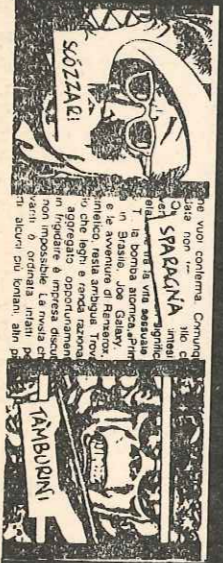 SCÒZZARI
SPARAGNA
TAMBURINI
ne vuoi conferma. Comunq
data non
intesi
signific
ela tra la vita sessuale
T la bomba atomica. Prim
in Brasile, Joe Galaxy,
e le avventure di Ranxerox,
timetico, resta ambigua. Trov
che leghi e renda raziona
aggregato opportunamen
in frigidaire è impresa discut
non impossibile. La rivista ch
vanti è ordinata infatti pe
alcuni più lontani, altri p